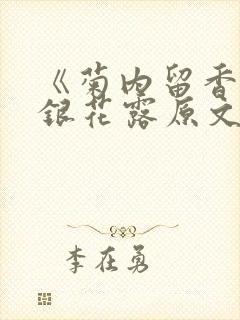 《菊内留香
銀花露原文
李在勇